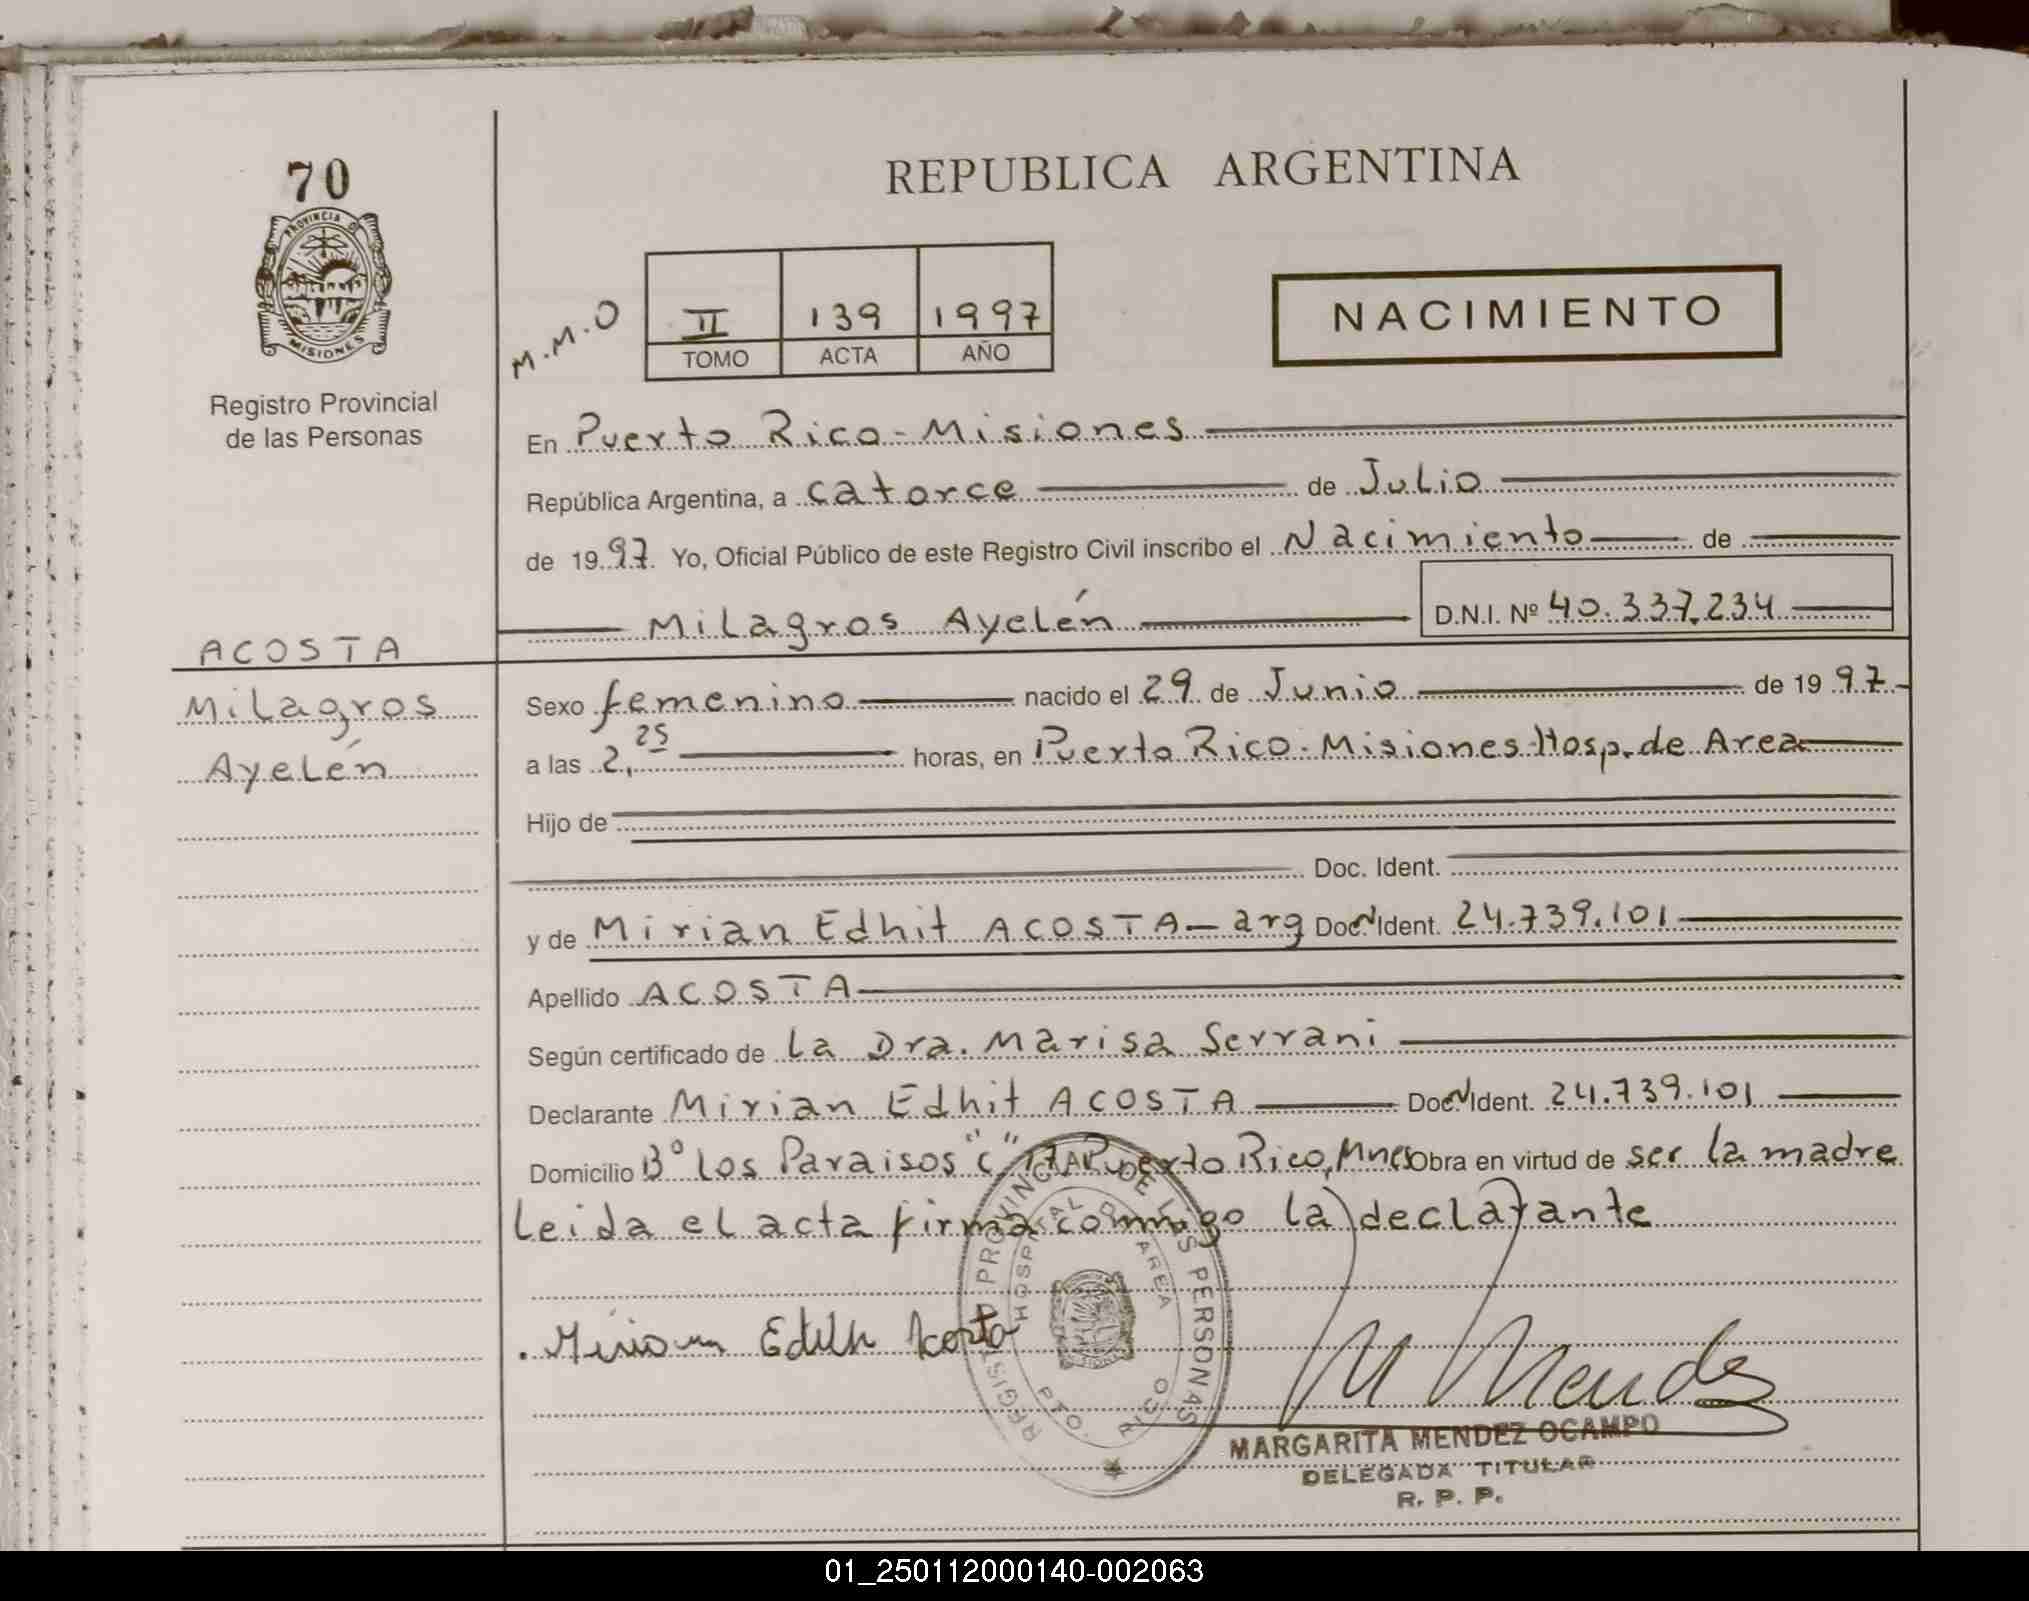 70
REPUBLICA ARGENTINA
PROVINCIA DE MISIONES
Registro Provincial
de las Personas
M.M.O
II 139 1997
TOMO ACTA AÑO
NACIMIENTO
En Puerto Rico - Misiones
República Argentina, a catorce de Julio
de 1997. Yo, Oficial Público de este Registro Civil inscribo el Nacimiento de
Milagros Ayelén D.N.I. Nº 40.337.234
ACOSTA
Milagros
Ayelén
Sexo femenino nacido el 29 de Junio de 1997
a las 2,25 horas, en Puerto Rico - Misiones - Hosp. de Area
Hijo de
Doc. Ident.
y de Mirian Edhit ACOSTA - arg Doc. Ident. 24.739.101
Apellido ACOSTA
Según certificado de la Dra. Marisa Serrani
Declarante Mirian Edhit ACOSTA Doc. Ident. 24.739.101
Domicilio Bº los Paraisos "C" 17 Puerto Rico, Mnes Obra en virtud de ser la madre
Leida el acta firma conmigo la declarante
Miriam Edith Acosta
M Mendez
REGISTRO PROVINCIAL DE LAS PERSONAS
HOSPITAL DE AREA
PTO. RICO
MARGARITA MENDEZ OCAMPO
DELEGADA TITULAR
R. P. P.
01_250112000140-002063